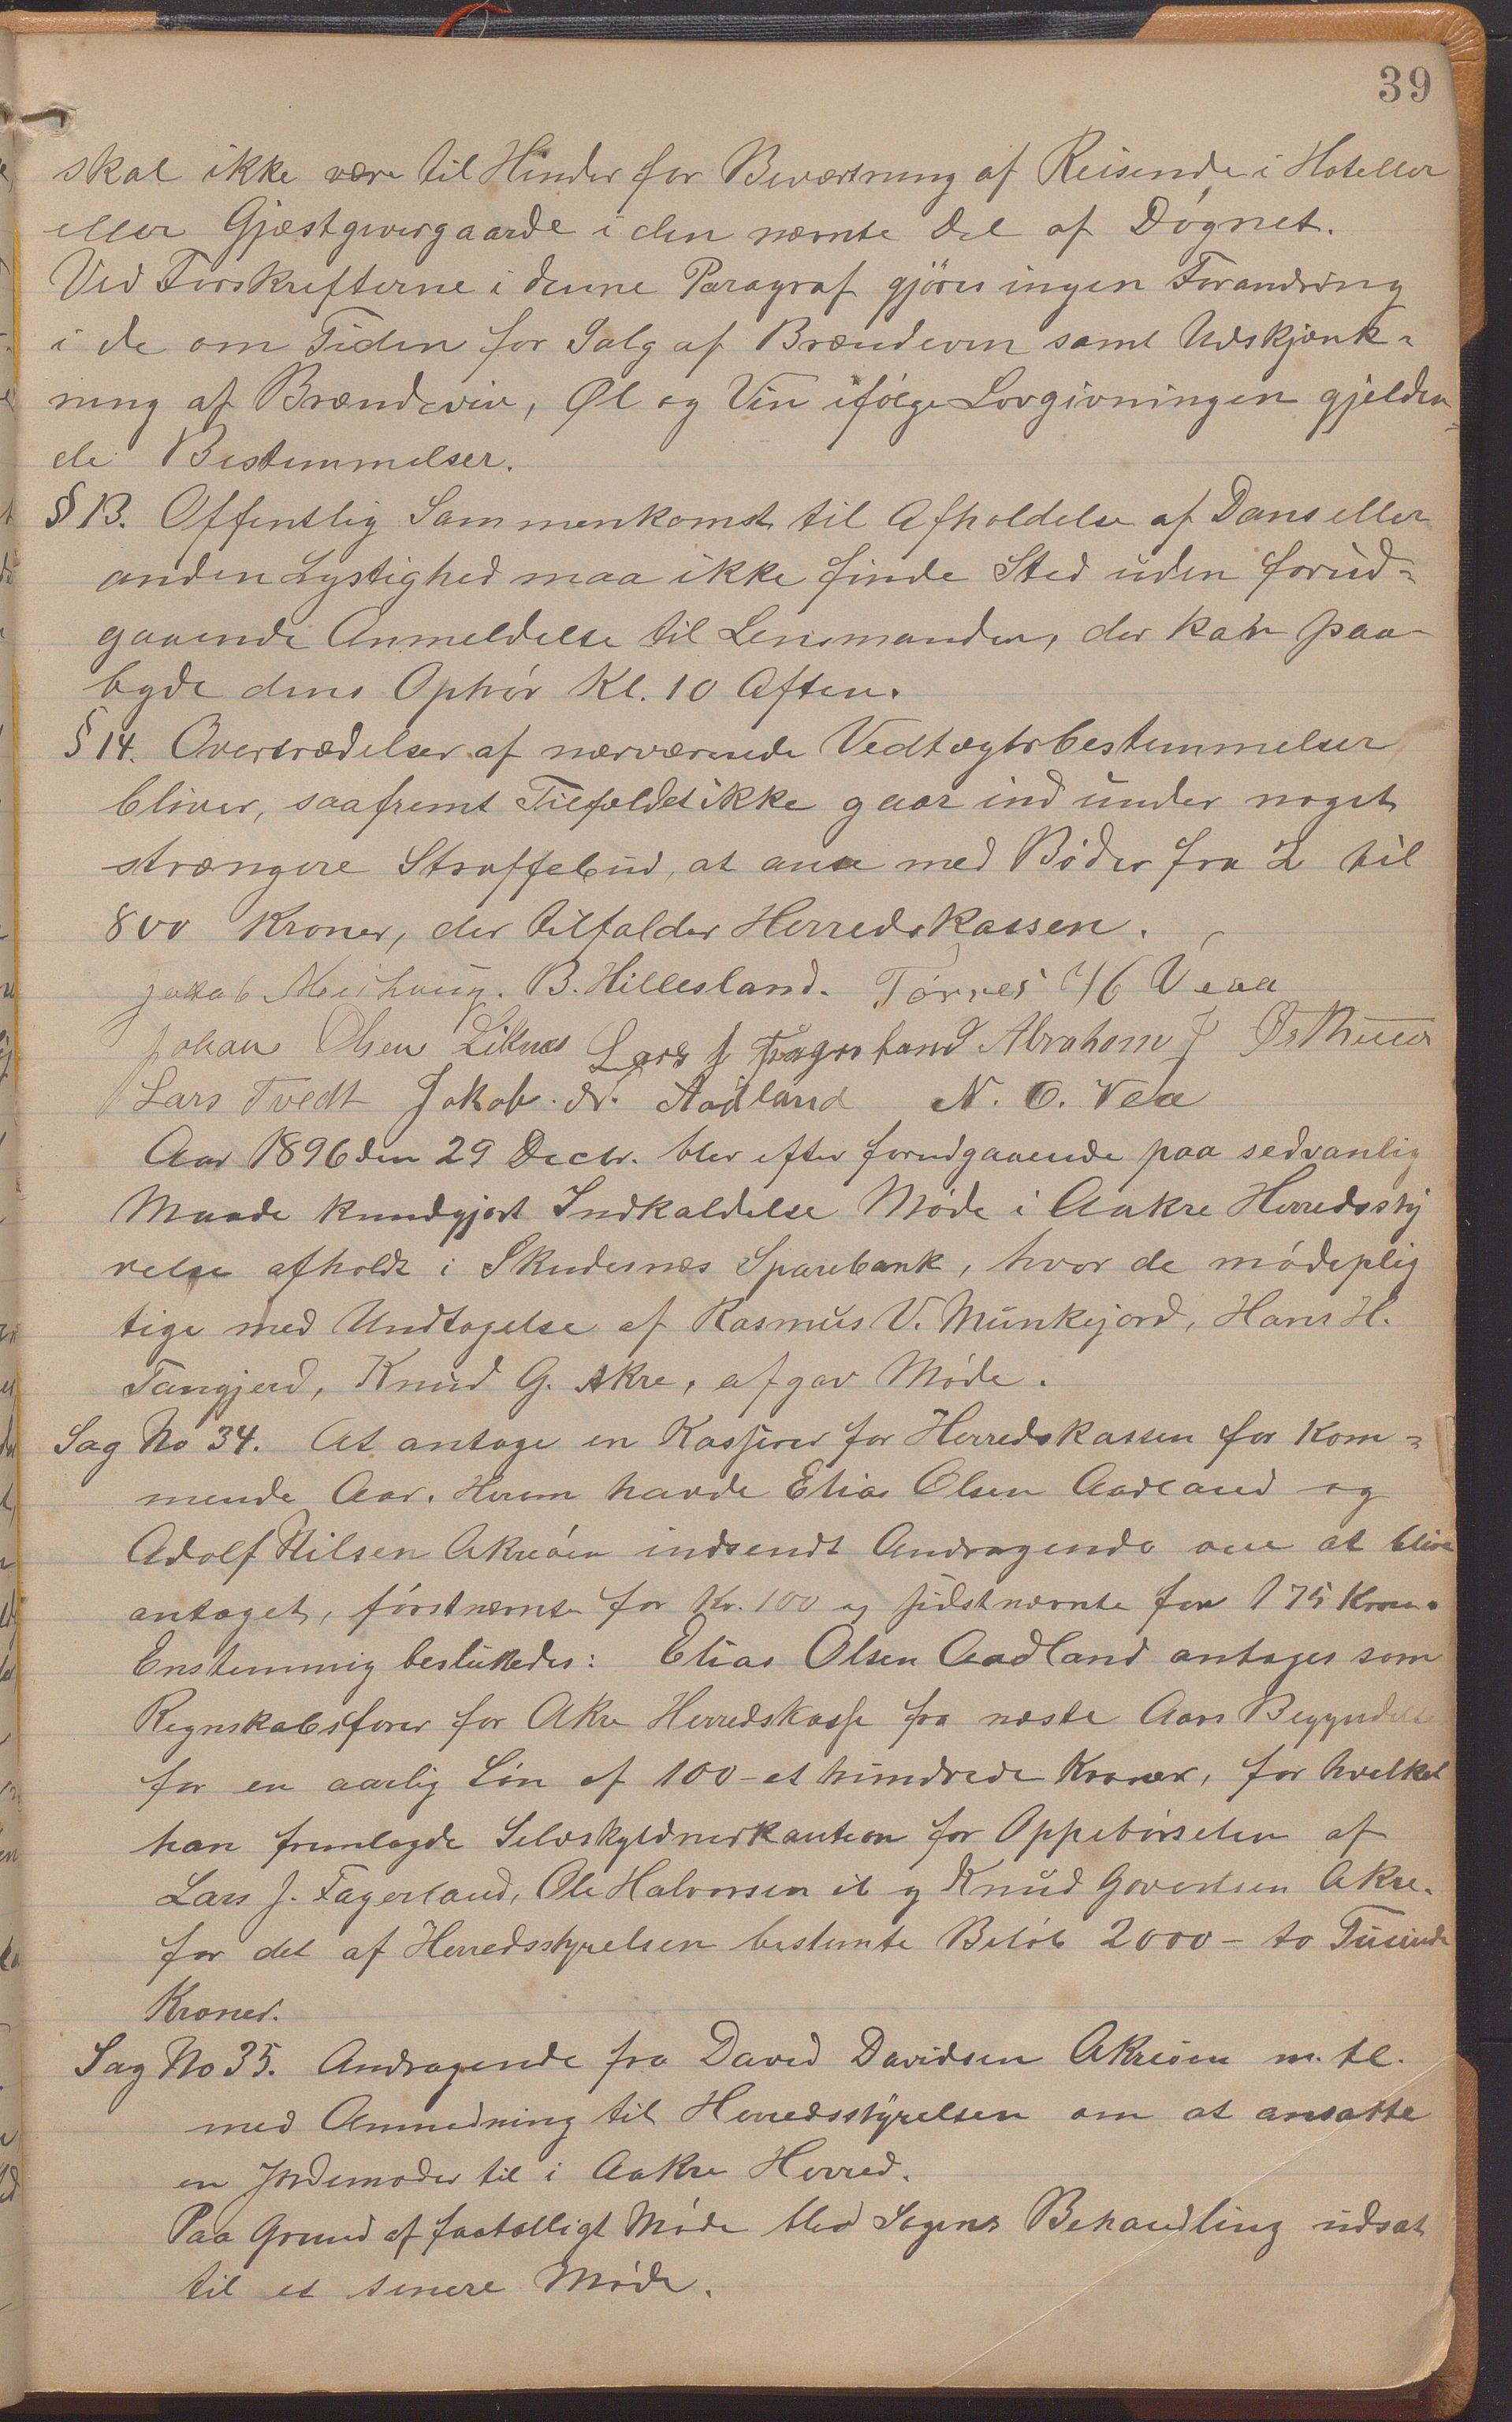 39
skal ikke være til Hinder for Beværtning af Reisende i Hoteller
eller Gjæstgivergaarde i den nævnte Del af Døgnet.
Ved Forskrifterne i denne Paragraf gjöres ingen Forandring
i de om Tiden for Salg af Brændevin samt Udskjænk-
ning af Brændevin, Øl og Vin ifølge Lovgivningen gjelden-
de Bestemmelser.
§ 13. Offentlig Sammenkomst til Afholdelse af Dans eller
anden Lystighed maa ikke finde Sted uden forud-
gaaende Anmeldelse til Lensmanden, der kan paa-
byde dens Ophør Kl. 10 Aften.
§ 14. Overtrædelser af nærværende Vedtægtsbestemmelser
bliver, saafremt Tilfældet ikke gaar ind under noget
strængere Straffebud, at anse med Bøder fra 2 til
800 Kroner, der tilfalder Herredskassen.
Jakob B. Hillesland. Törres Veaa
Johan Olsen Liknes Lars J Fagerland Abraham J Østhuus
Lars Tvedt Jakob. N. Aadland N. O. Vea
Aar 1896 den 29 Decbr. blev efter forudgaaende paa sedvanlig
Maade kundgjort Indkaldelse Møde i Aakre Herredssty
relse afholdt i Skudesnæs Sparebank, hvor de mødeplig
tige med Undtagelse af Rasmus V. Munkejord, Hans H.
Tangjerd, Knud G. Akre, afgav Møde.
Sag No 34. At antage en Kasserer for Herredskassen for kom-
mende Aar. Herom havde Elias Olsen Aadland og
Adolf Nilsen Akreøen indsendt Andragende om at blive
antaget, førstnævnte for Kr. 100 og sidstnævnte for 175 Kroner.
Enstemmig besluttedes: Elias Olsen Aadland antages som
Regnskabsfører for Akre Herredskasse fra næste Aars Begyndelse
for en aarlig Løn af 100 - et hundrede Kroner, for hvilket
han fremlagde Selvskyldnerkaution for Oppebørselen af
Lars J. Fagerland, Ole Halvorsen og Knud Govertsen Akre.
for det af Herredsstyrelsen bestemte Beløb 2000 - to Tusinde
Kroner.
Sag No 35. Andragende fra David Davidsen Akreøen m. fl.
med Anmodning til Herredsstyrelsen om at ansætte
en Jordemoder til i Aakre Herred.
Paa Grund af faatalligt Møde blev Sagens Behandling udsat
til et senere Møde.